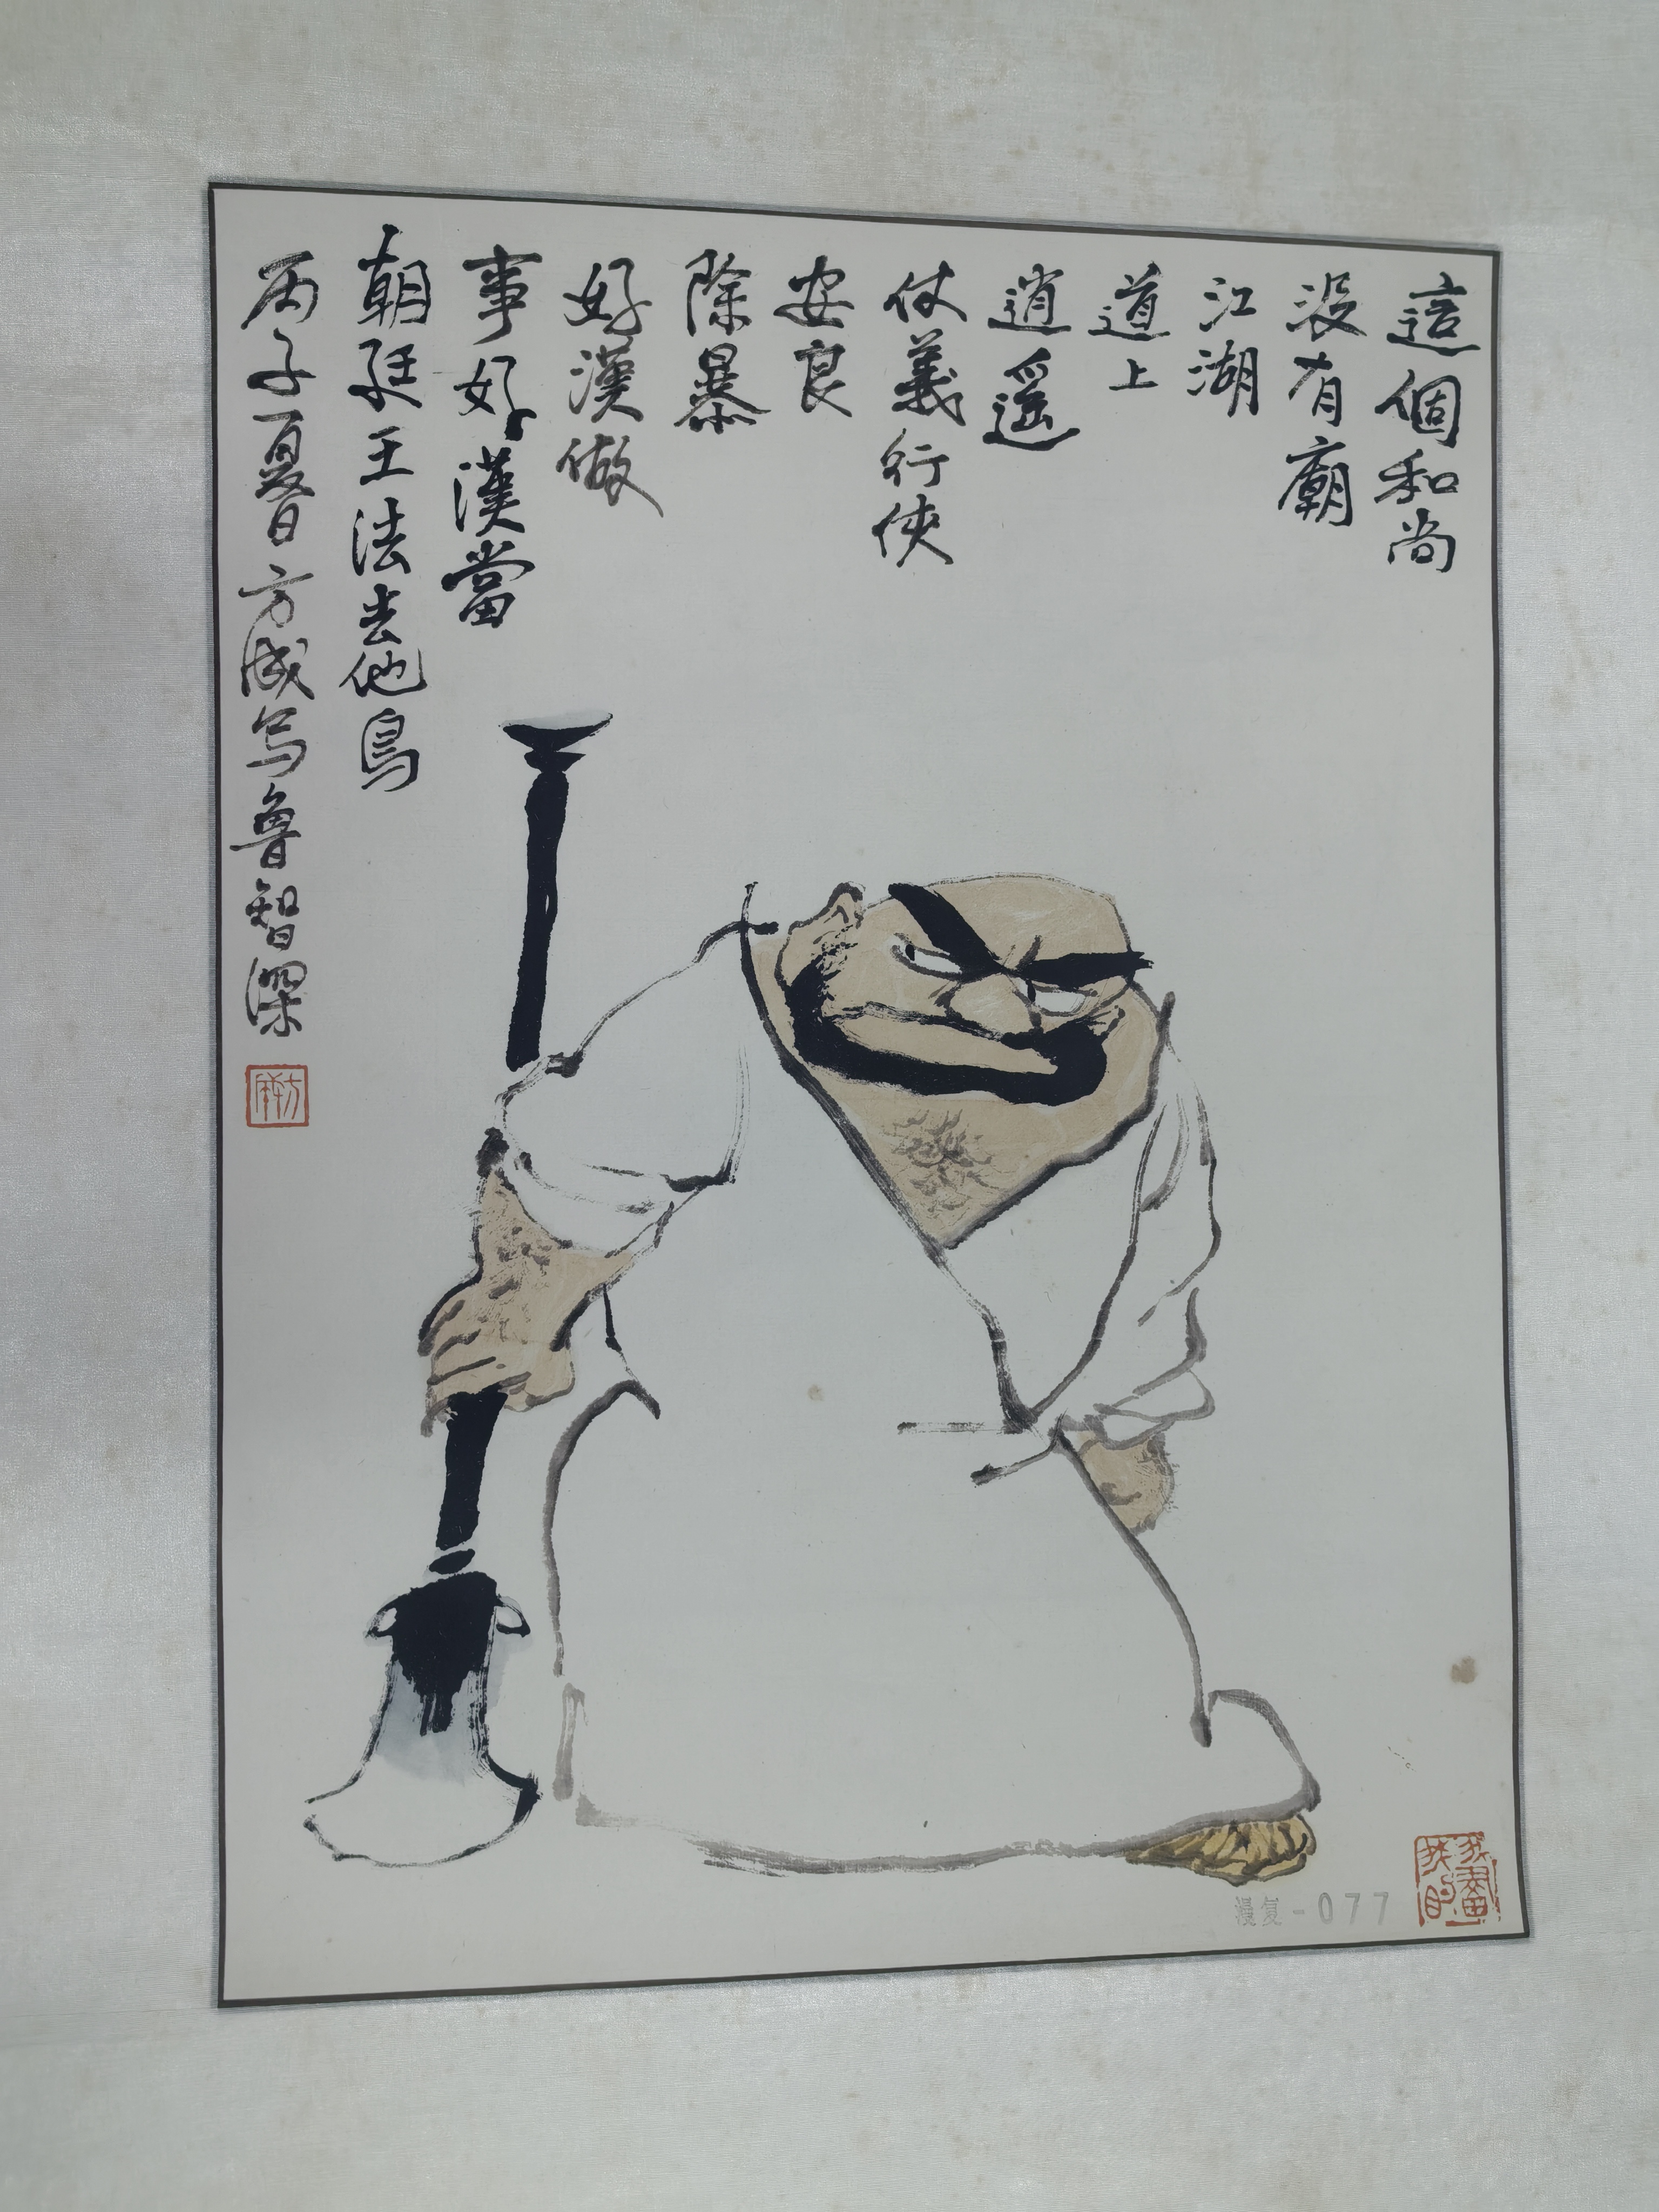 這個和尚
没有廟
江湖
道上
逍遥
仗義行俠
安良
除暴
好漢做
事好漢當
朝廷王法去他鳥
丙子夏日方成写鲁智深
方成
漫复-077
我畫我的